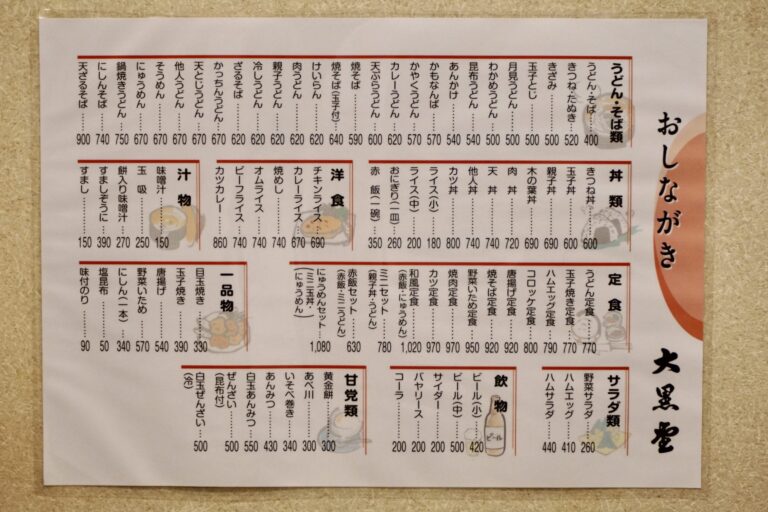 おしながき
大黒堂
うどん・そば類
うどん・そば……400
きつね・たぬき……520
きざみ……500
玉子とじ……500
月見うどん……500
わかめうどん……540
昆布うどん……540
あんかけ……540
かもなんば……570
かやくうどん……570
カレーうどん……620
天ぷらうどん……600
焼そば……590
焼そば(玉子付)……640
けいらん……620
肉うどん……620
親子うどん……620
冷しうどん……620
ざるそば……620
かっちんうどん……670
天とじうどん……670
他人うどん……670
そうめん……670
にゅうめん……670
鍋焼きうどん……750
にしんそば……740
天ざるそば……900
丼類
きつね丼……600
玉子丼……600
親子丼……690
木の葉丼……690
肉丼……720
天丼……740
他人丼……740
カツ丼……800
ライス(小)……180
ライス(中)……200
おにぎり(一皿)……260
赤飯(一碗)……350
洋食
チキンライス……690
カレーライス……670
焼めし……740
オムライス……740
ビーフライス……740
カツカレー……860
汁物
味噌汁……150
玉吸……250
餅入り味噌汁……270
すましぞうに……390
すまし……150
定食
うどん定食……770
玉子焼き定食……770
ハムエッグ定食……790
コロッケ定食……800
唐揚げ定食……920
焼そば定食……920
野菜いため定食……950
焼肉定食……970
カツ定食……970
和風定食……1,020
(赤飯・にゅうめん)
ミニセット……780
(親子丼・うどん)
赤飯セット……630
(赤飯・ミニうどん)
にゅうめんセット……1,080
(ミニ玉丼・にゅうめん)
一品物
目玉焼き……330
玉子焼き……390
唐揚げ……540
野菜いため……570
にしん(一本)……340
塩昆布……50
味付のり……90
サラダ類
野菜サラダ……260
ハムエッグ……410
ハムサラダ……440
飲物
ビール(小)……420
ビール(中)……500
サイダー……200
バヤリース……200
コーラ……200
ビール
甘党類
黄金餅……300
あべ川……300
いそべ巻き……340
あんみつ……430
白玉あんみつ……550
ぜんざい……500
(昆布付)
白玉ぜんざい……500
(冷)